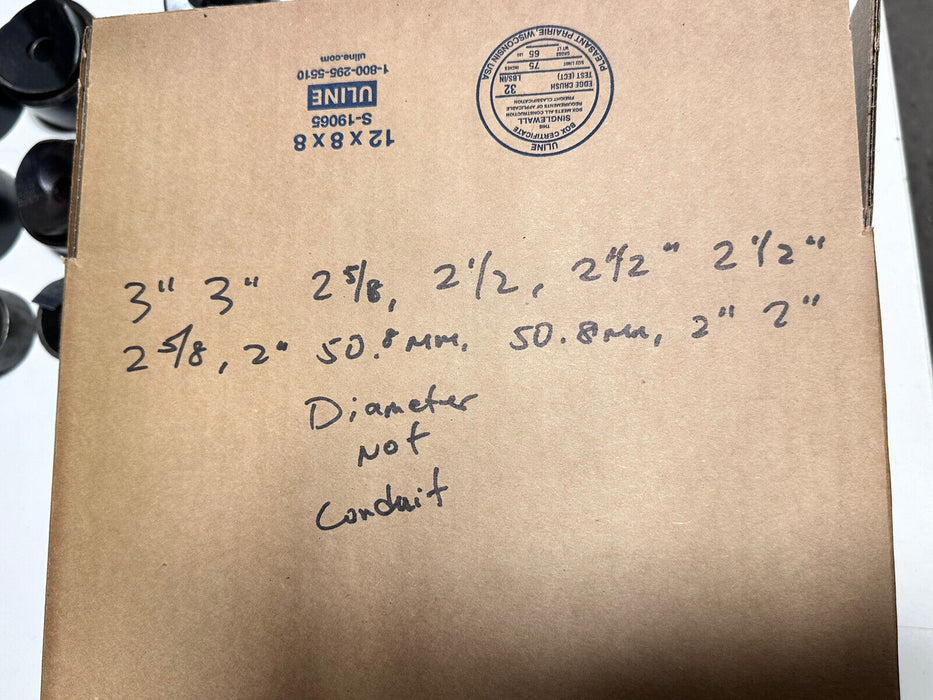 12 x 8 x 8
S-19065
ULINE
1-800-295-5510
uline.com
ULINE
BOX CERTIFICATE
THIS
SINGLEWALL
BOX MEETS ALL CONSTRUCTION
REQUIREMENTS OF APPLICABLE
FREIGHT CLASSIFICATION
EDGE CRUSH
TEST (ECT)
32
LBS/IN
SIZE LIMIT
75
INCHES
GROSS
WT LT
65
LBS
PLEASANT PRAIRIE, WISCONSIN USA
3" 3" 2 5/8, 2 1/2, 2 1/2" 2 1/2"
2 5/8, 2" 50.8mm, 50.8mm, 2" 2"
Diameter
Not
Conduit